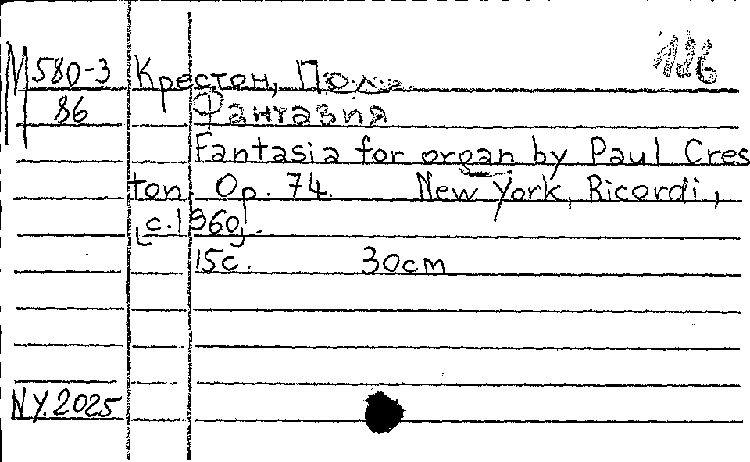 186
М580-3 Крестон, Пол.
86 Фантазия
Fantasia for organ by Paul Cres
ton. Op. 74. New York, Ricordi,
[c.1960].
15c. 30cm
NY.2025